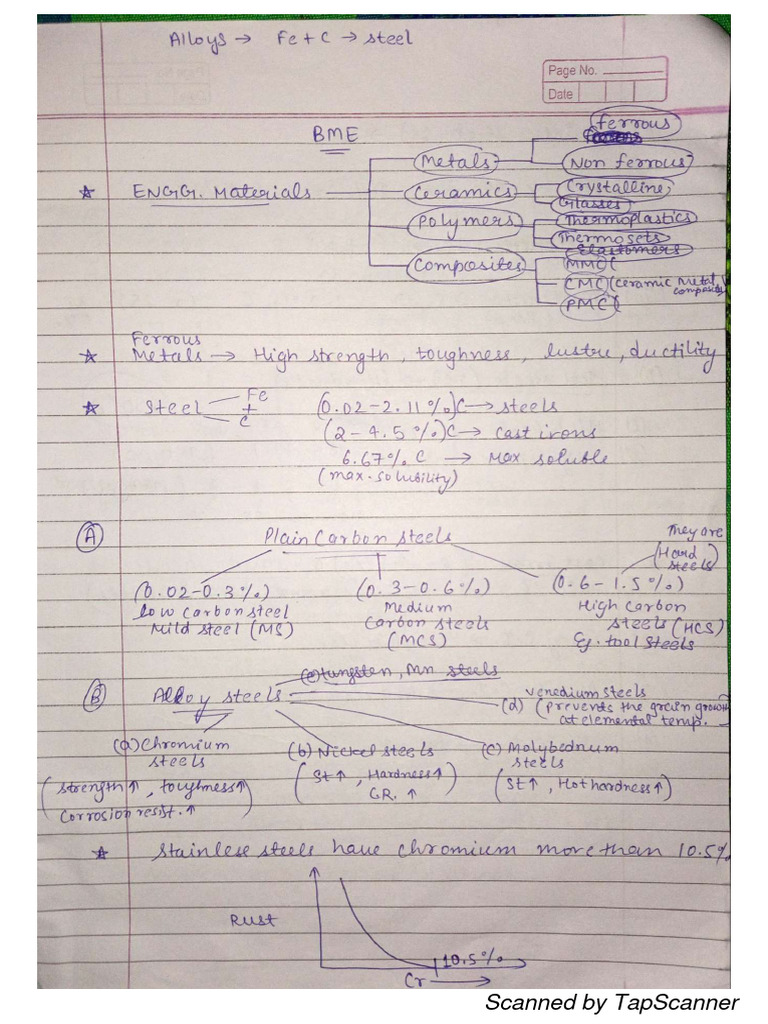 Alloys → Fe + C → steel
Page No.
Date
BME
★ ENGG. Materials
Metals
Ferrous
Non ferrous
Ceramics
Crystalline,
Glasses
Polymers
Thermoplastics
Thermosets
Elastomers
Composites
MMC (
CMC (ceramic Metal
composite)
PMC (
Ferrous
★ Metals → High strength, toughness, lustre, ductility
★ Steel Fe + C
(0.02-2.11%)C → steels
(2-4.5%)C → cast irons
6.67% C → Max soluble
(max. solubility)
(A) Plain Carbon steels
They are
(Hard steels)
(0.02-0.3%)
low carbon steel
Mild steel (MS)
(0.3-0.6%)
Medium
Carbon steels
(MCS)
(0.6-1.5%)
High carbon
steels (HCS)
Eg. tool steels
(e) tungsten, Mn steels
(B) Alloy steels
venedium steels
(d) (prevents the grain growth
at elemental temp.
(a) Chromium
steels
(strength↑, toughness↑
corrosion resist.↑)
(b) Nickel steels
(St↑, Hardness↑
CR.↑)
(c) Molybednum
steels
(St↑, Hot hardness↑)
★ stainless steels have chromium more than 10.5%
Rust
10.5%
Cr →
Scanned by TapScanner